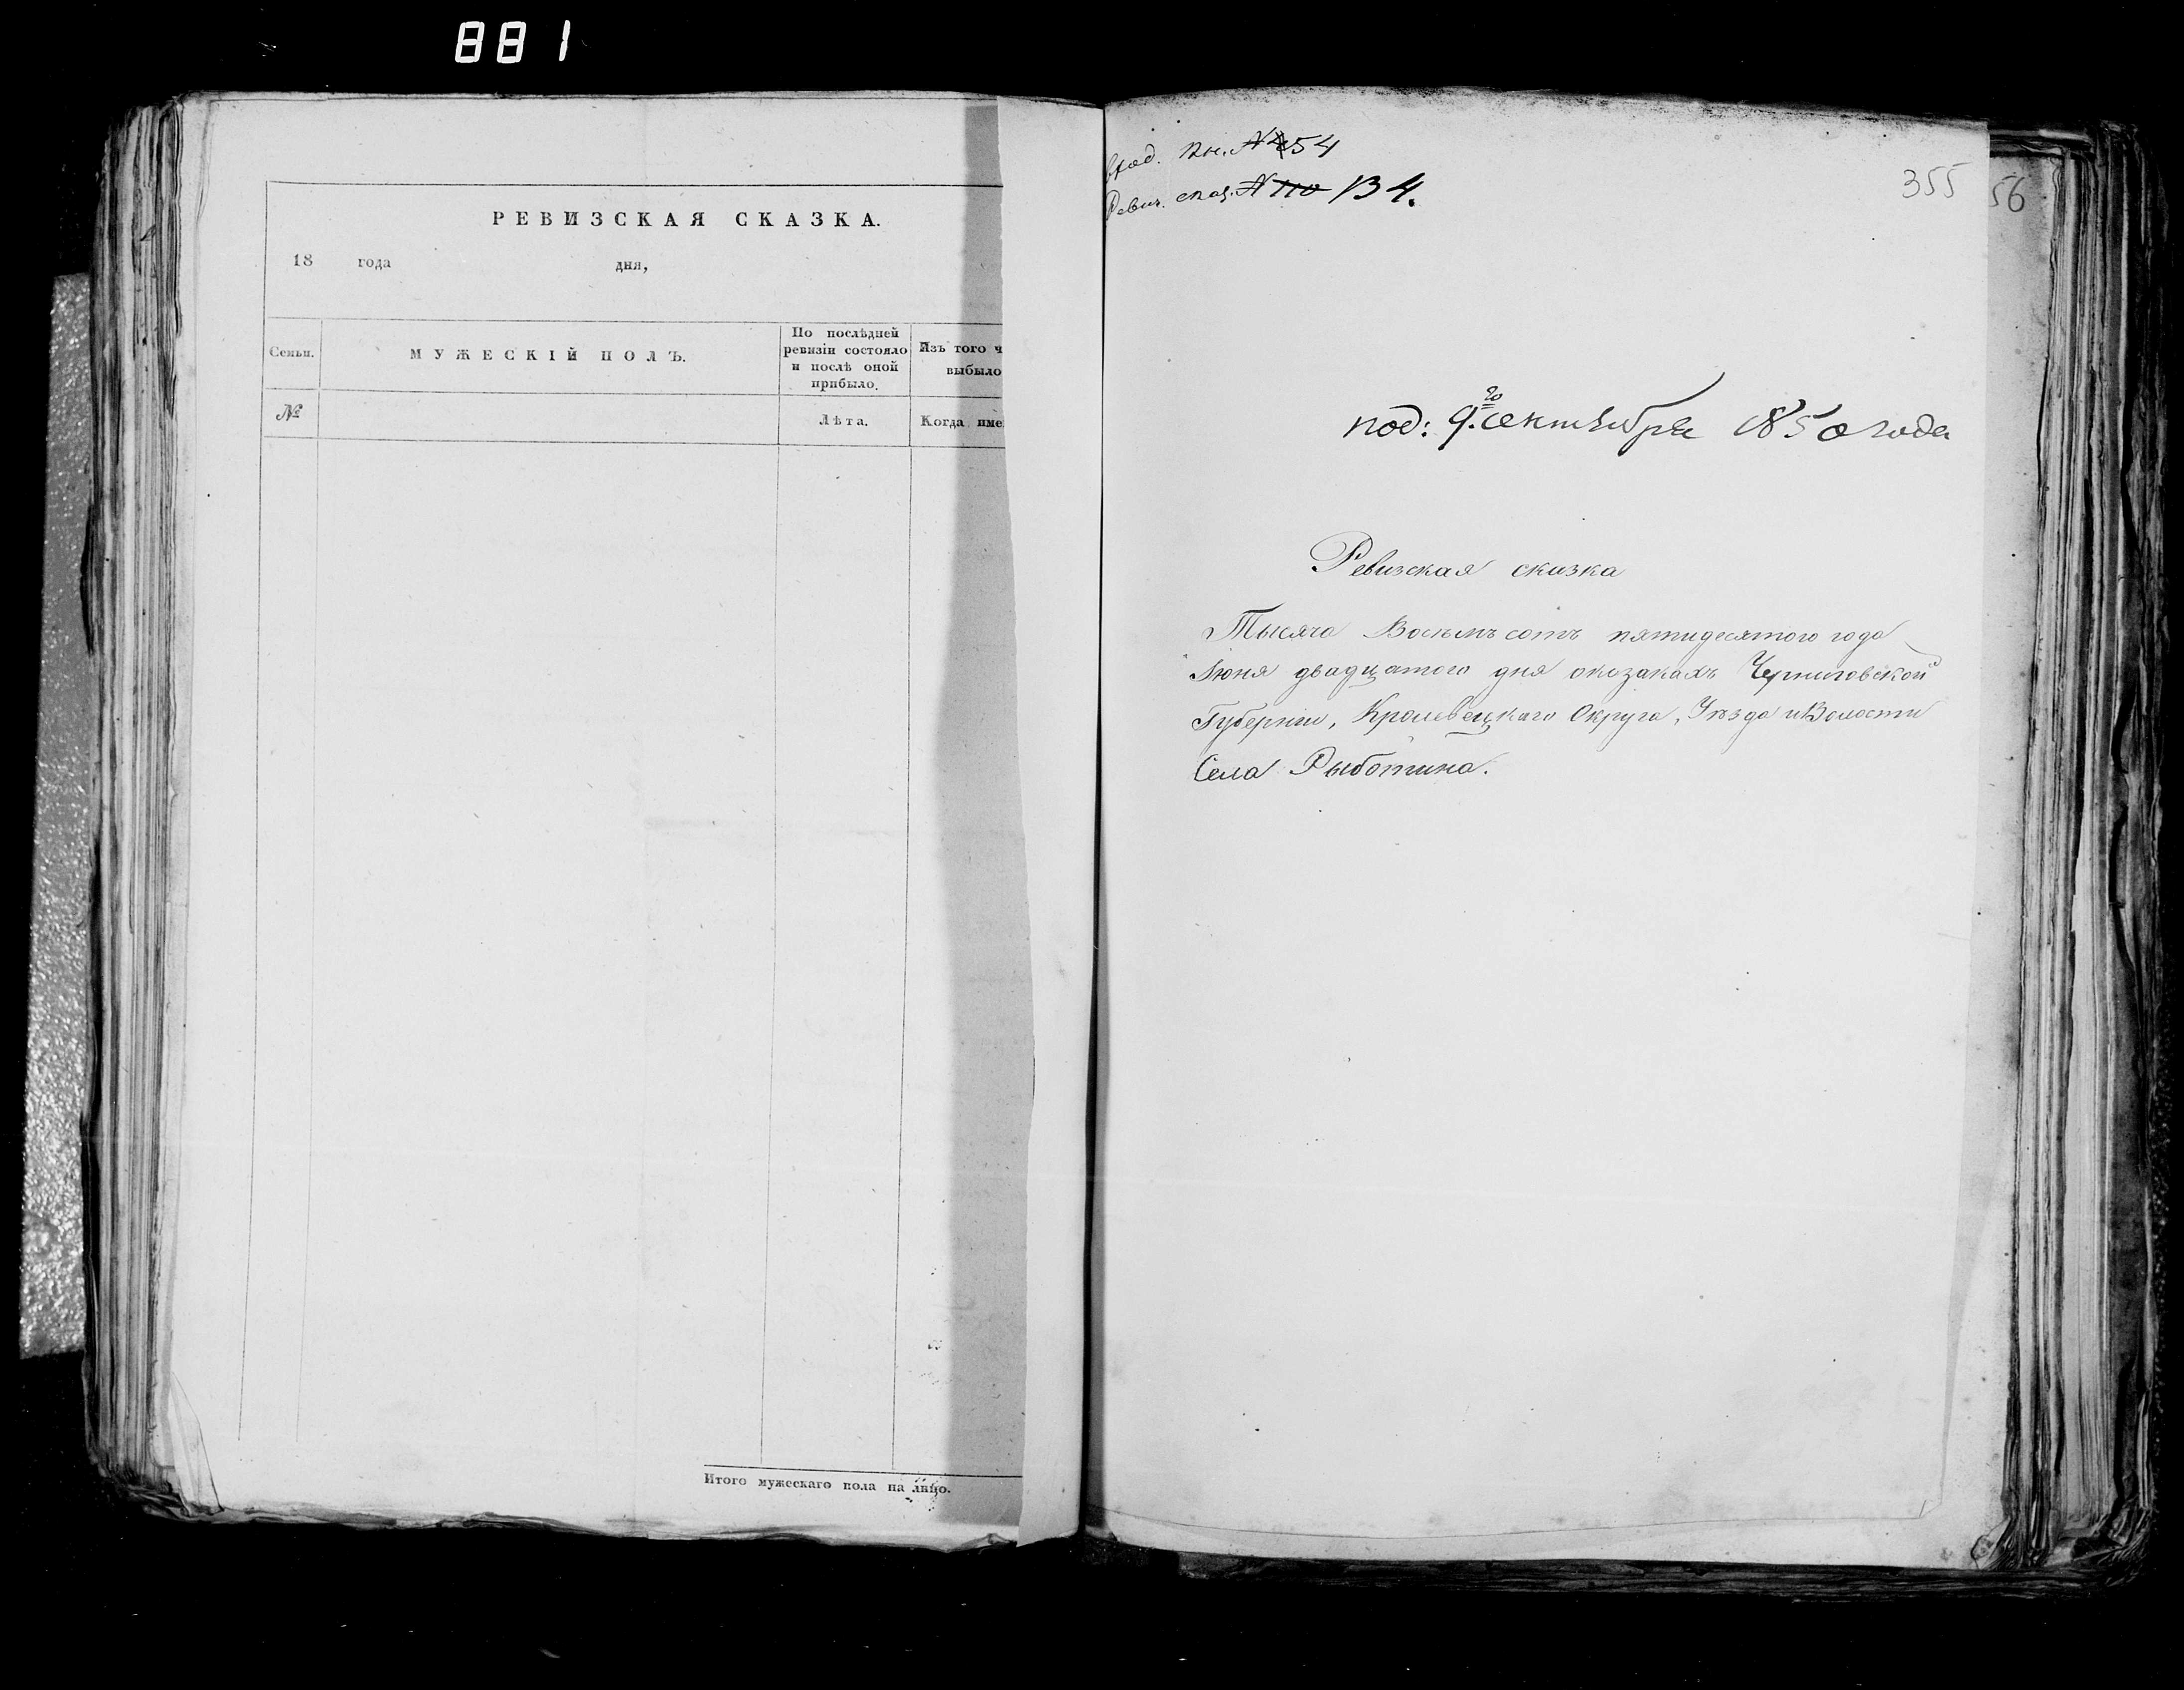 881
РЕВИЗСКАЯ СКАЗКА.
18 года дня,
Семьи.
МУЖЕСКІЙ ПОЛЪ.
По послѣдней
ревизіи состояло
и послѣ оной
прибыло.
Изъ того ч
выбыло
№
Лѣта.
Когда име
Итого мужескаго пола на лицо.
вход. кн. № 54
Ревиз. сказ. № 110 134.
355
56
под: 9.го сентября 1850 года
Ревизская сказка
Тысяча Восемьсотъ пятидесятого года
Июня двадцатого дня оказакахъ Черниговской
Губернии, Кролевецкаго Округа, Уѣзда и Волости
Села Рыботина.